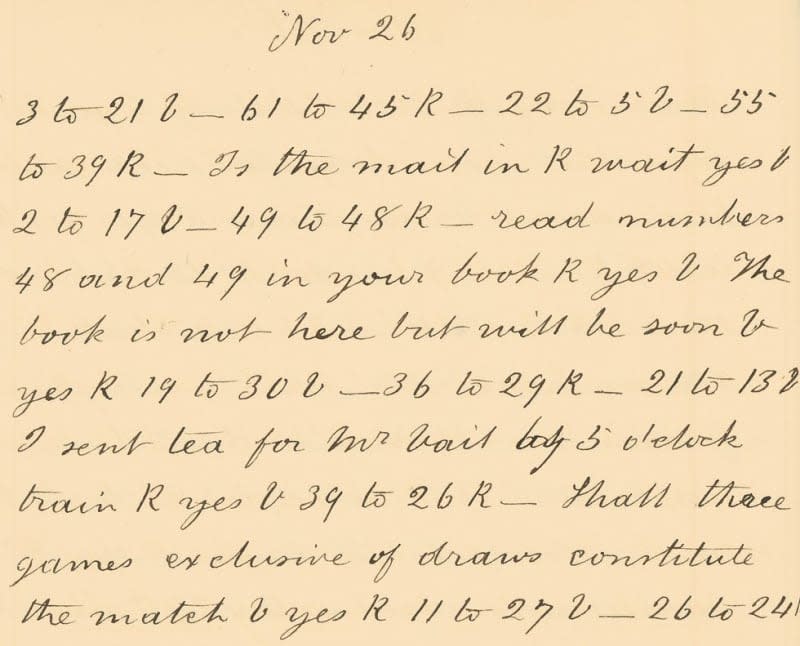 Nov 26
3 to 21 V — 61 to 45 R — 22 to 5 V — 55
to 39 R — Is the mail in R wait yes V
2 to 17 V — 49 to 48 R — read numbers
48 and 49 in your book R yes V The
book is not here but will be soon V
yes R 19 to 30 V — 36 to 29 R — 21 to 13 V
I sent tea for Mr Vail by 5 o'clock
train R yes V 39 to 26 R — Shall three
games exclusive of draws constitute
the match V yes R 11 to 27 V — 26 to 24